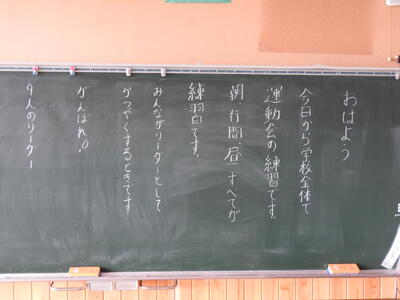 おはよう
今日から学校全体で
運動会の練習です。
朝、行間、昼、すべてが
練習日です。
みんながリーダーとして
かつやくするときです
がんばれ!!
9人のリーダー